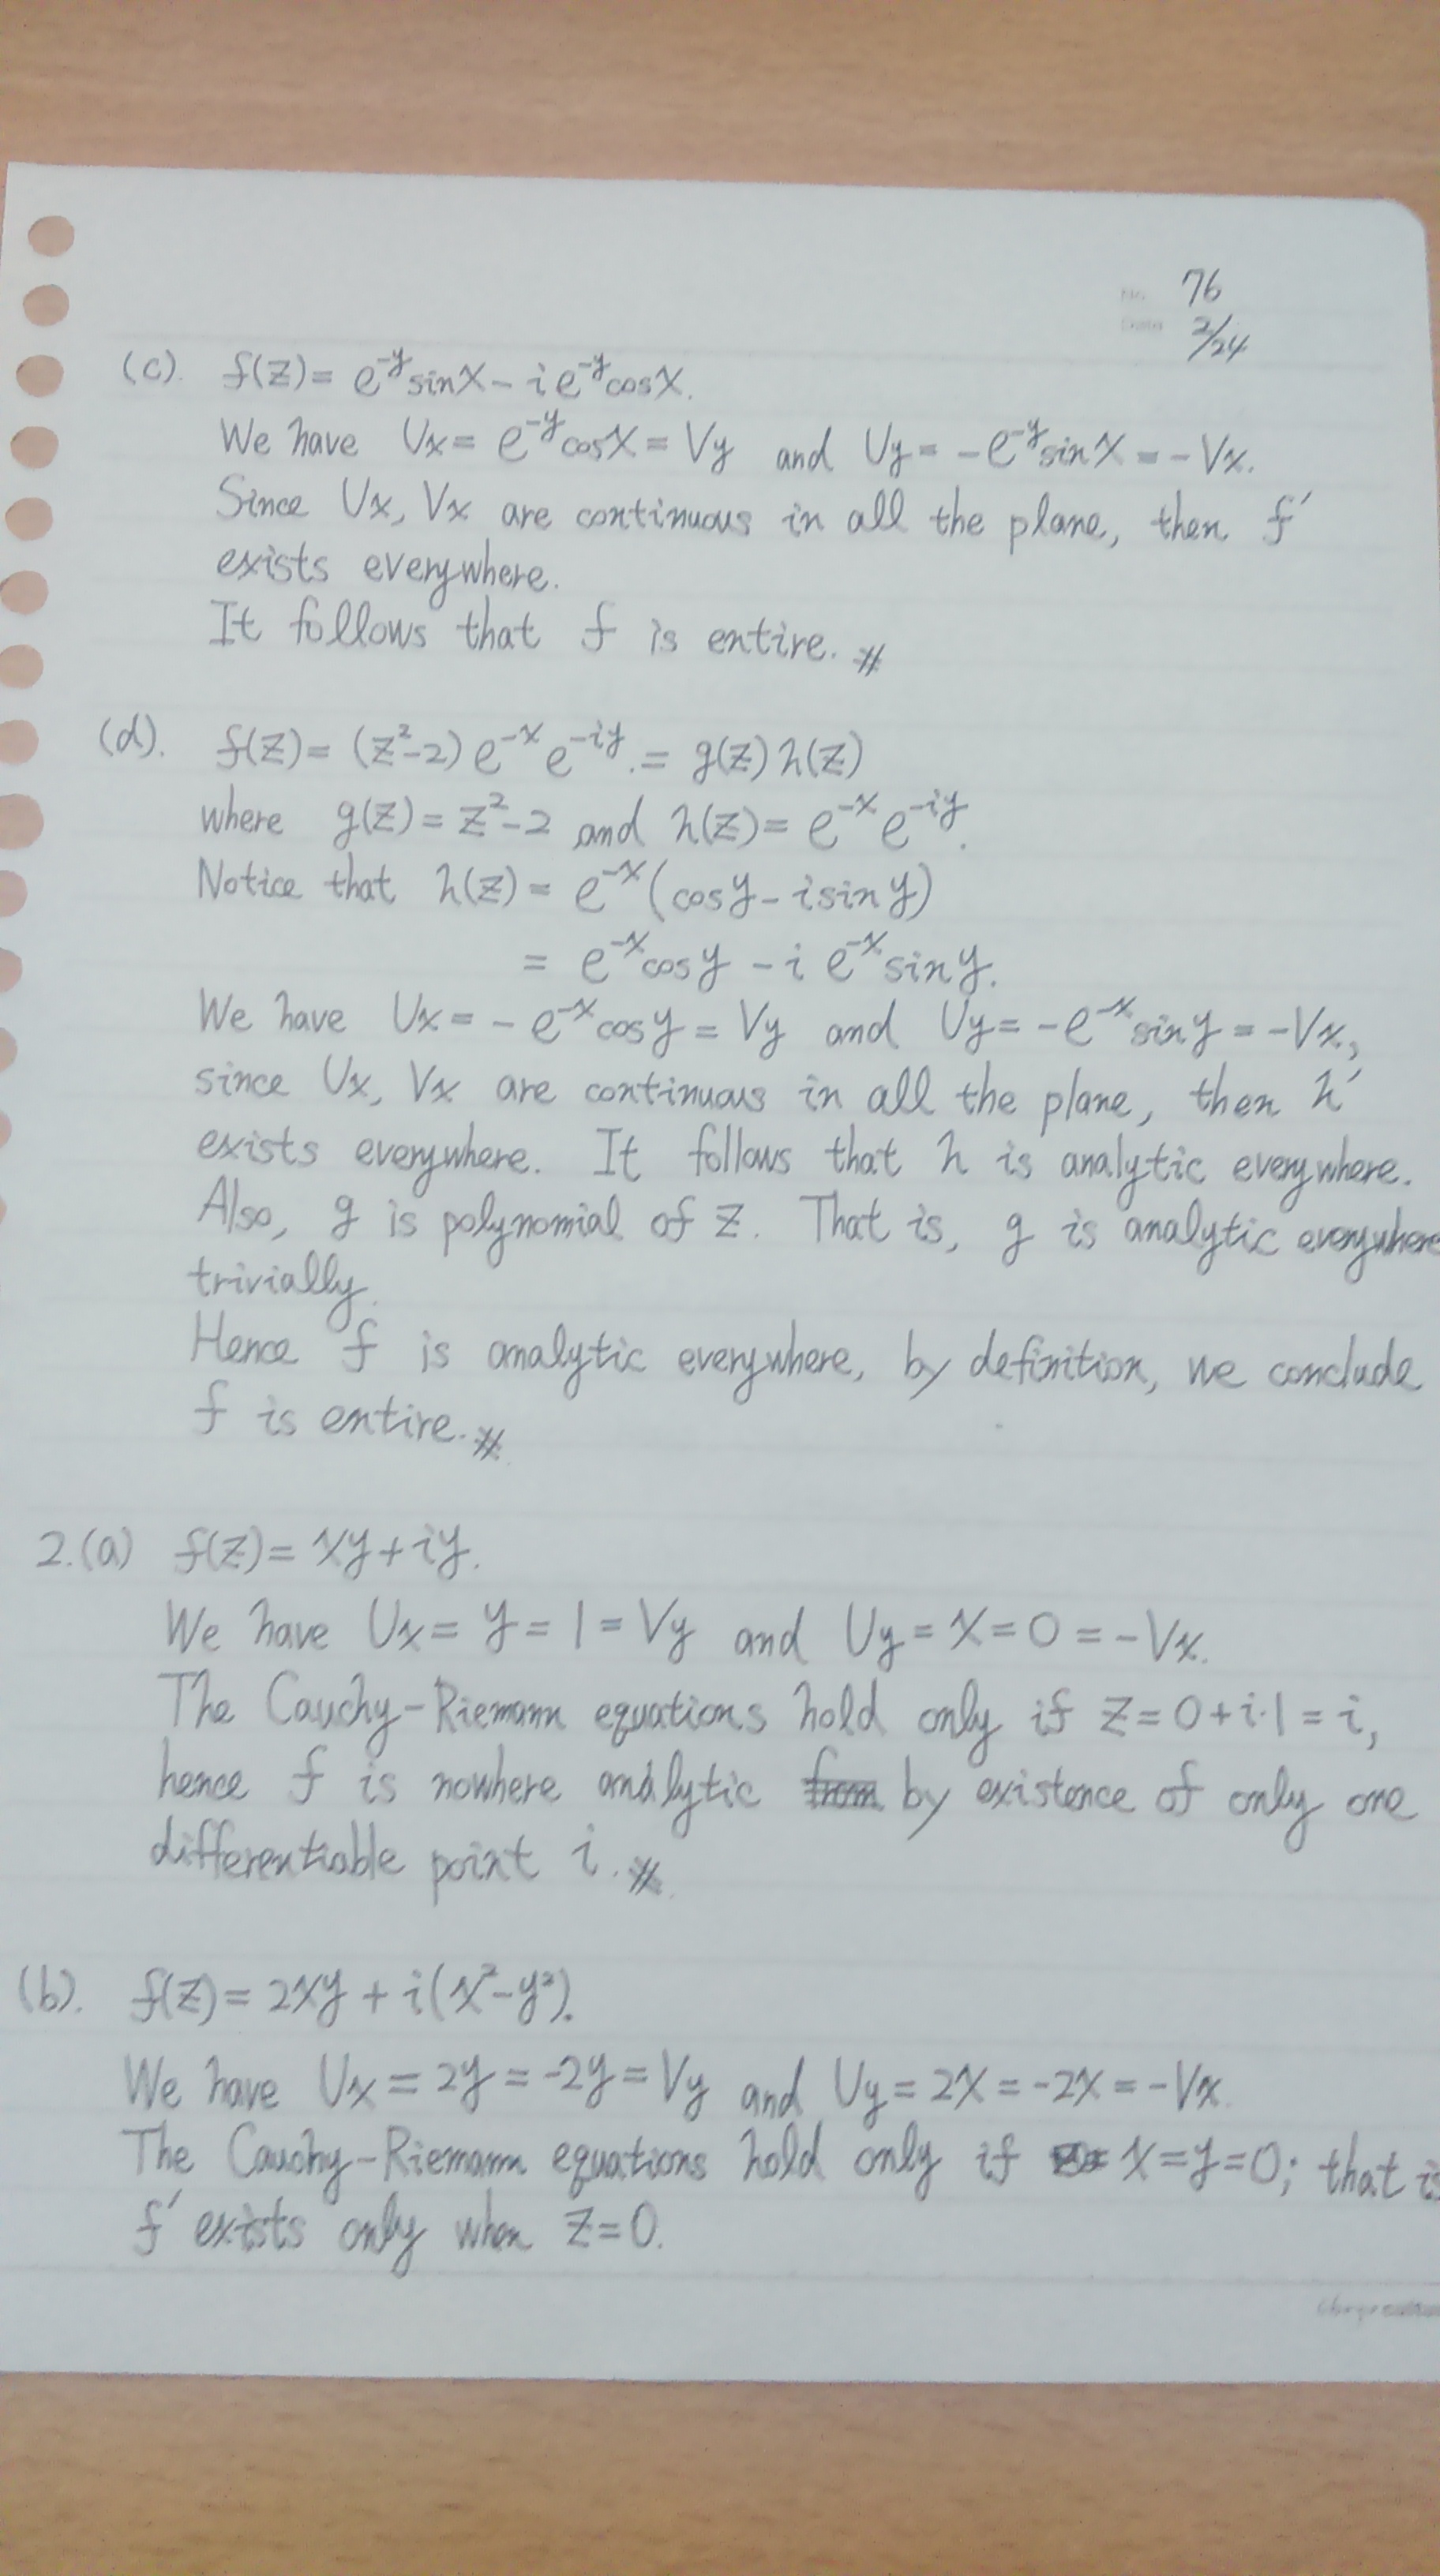 No. 76
Date 2/24
(c). f(z) = e^{-y} sin x - i e^{-y} cos x.
We have Ux = e^{-y} cos x = Vy and Uy = -e^{-y} sin x = -Vx.
Since Ux, Vx are continuous in all the plane, then f'
exists everywhere.
It follows that f is entire. #
(d). f(z) = (z²-2) e^{-x} e^{-iy}. = g(z) h(z)
where g(z) = z²-2 and h(z) = e^{-x} e^{-iy}.
Notice that h(z) = e^{-x} (cos y - i sin y)
= e^{-x} cos y - i e^{-x} sin y.
We have Ux = -e^{-x} cos y = Vy and Uy = -e^{-x} sin y = -Vx,
since Ux, Vx are continuous in all the plane, then h'
exists everywhere. It follows that h is analytic everywhere.
Also, g is polynomial of z. That is, g is analytic everywhere
trivially.
Hence f is analytic everywhere, by definition, we conclude
f is entire. #
2.(a) f(z) = xy + iy.
We have Ux = y = 1 = Vy and Uy = x = 0 = -Vx.
The Cauchy-Riemann equations hold only if z = 0 + i·1 = i,
hence f is nowhere analytic from by existence of only one
differentiable point i. #
(b). f(z) = 2xy + i(x²-y²).
We have Ux = 2y = -2y = Vy and Uy = 2x = -2x = -Vx.
The Cauchy-Riemann equations hold only if x=y=0; that is
f' exists only when z=0.